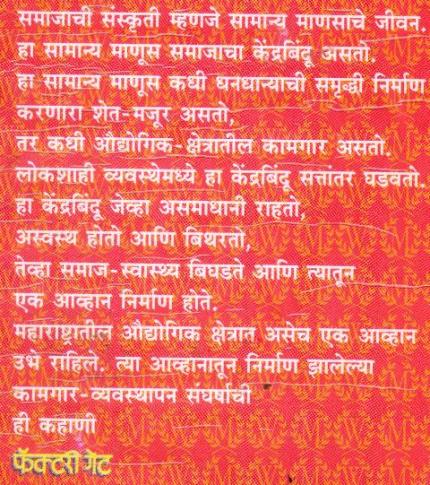 समाजाची संस्कृती म्हणजे सामान्य माणसाचे जीवन.
हा सामान्य माणूस समाजाचा केंद्रबिंदू असतो.
हा सामान्य माणूस कधी धनधान्याची समृद्धी निर्माण
करणारा शेत-मजूर असतो,
तर कधी औद्योगिक-क्षेत्रातील कामगार असतो.
लोकशाही व्यवस्थेमध्ये हा केंद्रबिंदू सत्तांतर घडवतो.
हा केंद्रबिंदू जेव्हा असमाधानी राहतो,
अस्वस्थ होतो आणि बिथरतो,
तेव्हा समाज-स्वास्थ्य बिघडते आणि त्यातून
एक आव्हान निर्माण होते.
महाराष्ट्रातील औद्योगिक क्षेत्रात असेच एक आव्हान
उभे राहिले. त्या आव्हानातून निर्माण झालेल्या
कामगार-व्यवस्थापन संघर्षाची
ही कहाणी
फॅक्टरी गेट